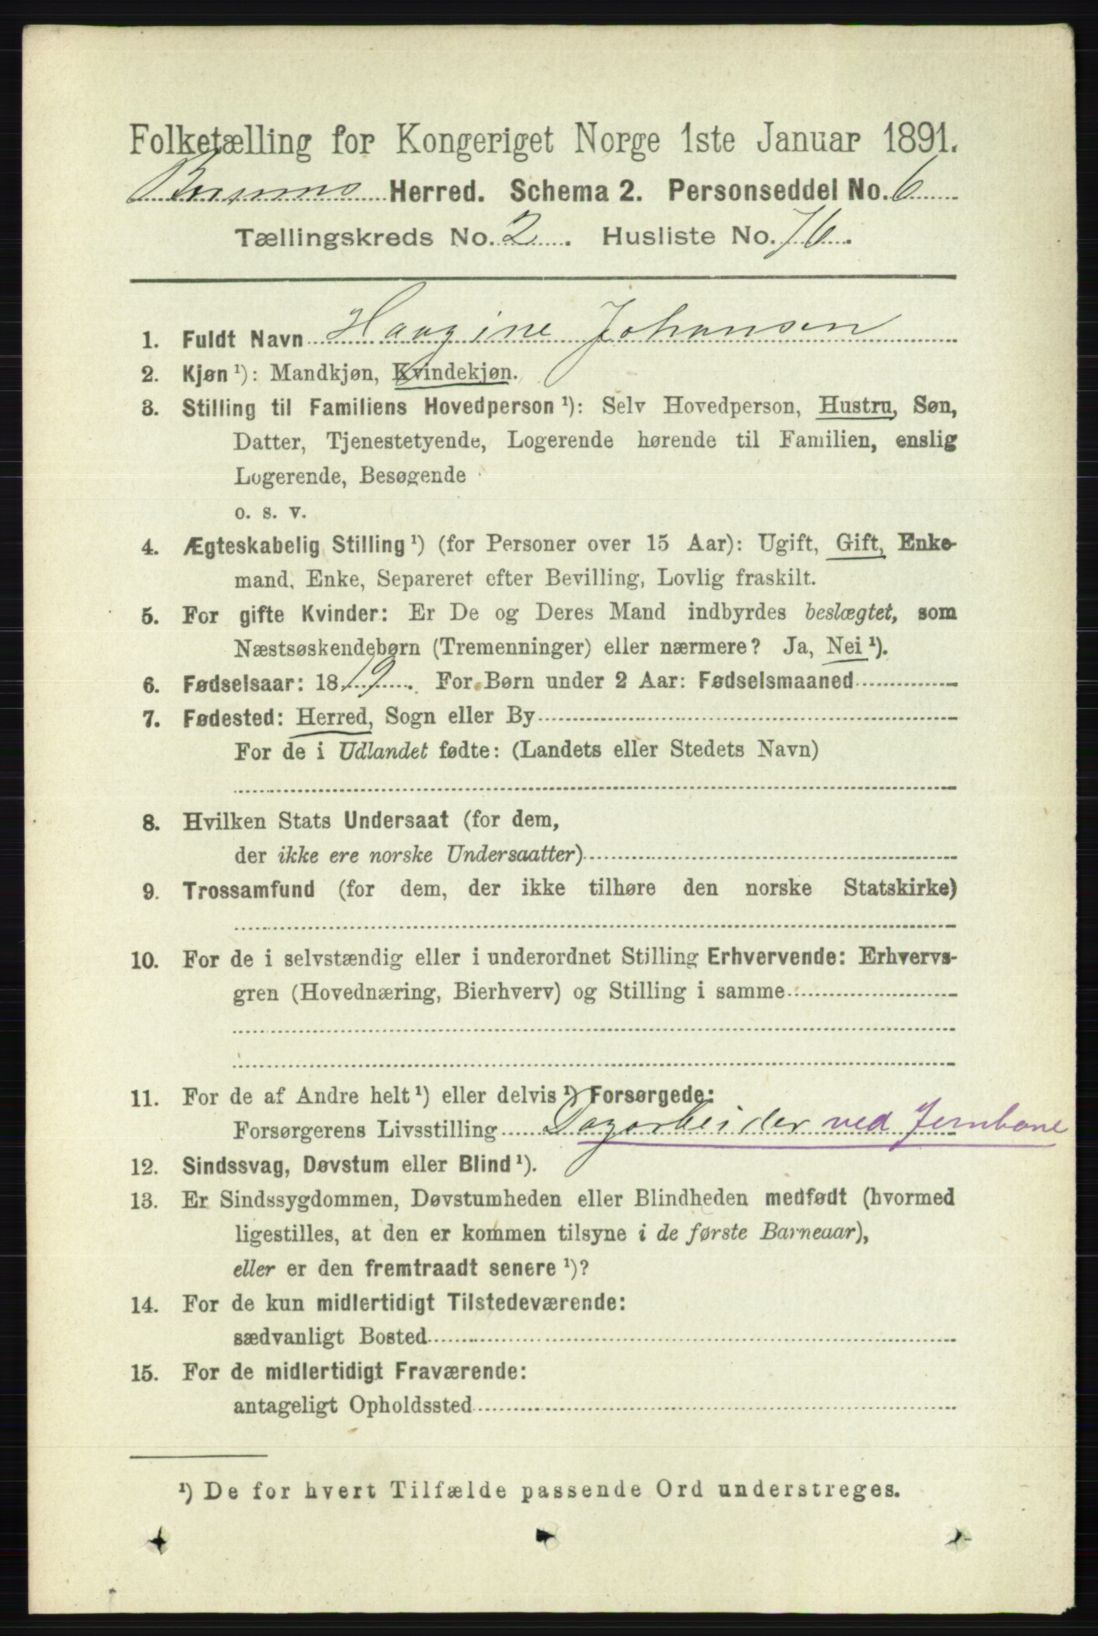 Folketælling for Kongeriget Norge 1ste Januar 1891.
Bærums Herred. Schema 2. Personseddel No. 6
Tællingskreds No. 2. Husliste No. 76.
1. Fuldt Navn Haagine Johansen
2. Kjøn ¹): Mandkjøn, Kvindekjøn.
3. Stilling til Familiens Hovedperson ¹): Selv Hovedperson, Hustru, Søn,
Datter, Tjenestetyende, Logerende hørende til Familien, enslig
Logerende, Besøgende
o. s. v.
4. Ægteskabelig Stilling ¹) (for Personer over 15 Aar): Ugift, Gift, Enke-
mand, Enke, Separeret efter Bevilling, Lovlig fraskilt.
5. For gifte Kvinder: Er De og Deres Mand indbyrdes beslægtet, som
Næstsøskendebørn (Tremenninger) eller nærmere? Ja, Nei ¹).
6. Fødselsaar: 1819. For Børn under 2 Aar: Fødselsmaaned
7. Fødested: Herred, Sogn eller By
For de i Udlandet fødte: (Landets eller Stedets Navn)
8. Hvilken Stats Undersaat (for dem,
der ikke ere norske Undersaatter)
9. Trossamfund (for dem, der ikke tilhøre den norske Statskirke)
10. For de i selvstændig eller i underordnet Stilling Erhvervende: Erhvervs-
gren (Hovednæring, Bierhverv) og Stilling i samme
11. For de af Andre helt ¹) eller delvis ¹) Forsørgede:
Forsørgerens Livsstilling Dagarbeider ved Jernbane
12. Sindssvag, Døvstum eller Blind ¹).
13. Er Sindssygdommen, Døvstumheden eller Blindheden medfødt (hvormed
ligestilles, at den er kommen tilsyne i de første Barneaar),
eller er den fremtraadt senere ¹)?
14. For de kun midlertidigt Tilstedeværende:
sædvanligt Bosted
15. For de midlertidigt Fraværende:
antageligt Opholdssted
¹) De for hvert Tilfælde passende Ord understreges.